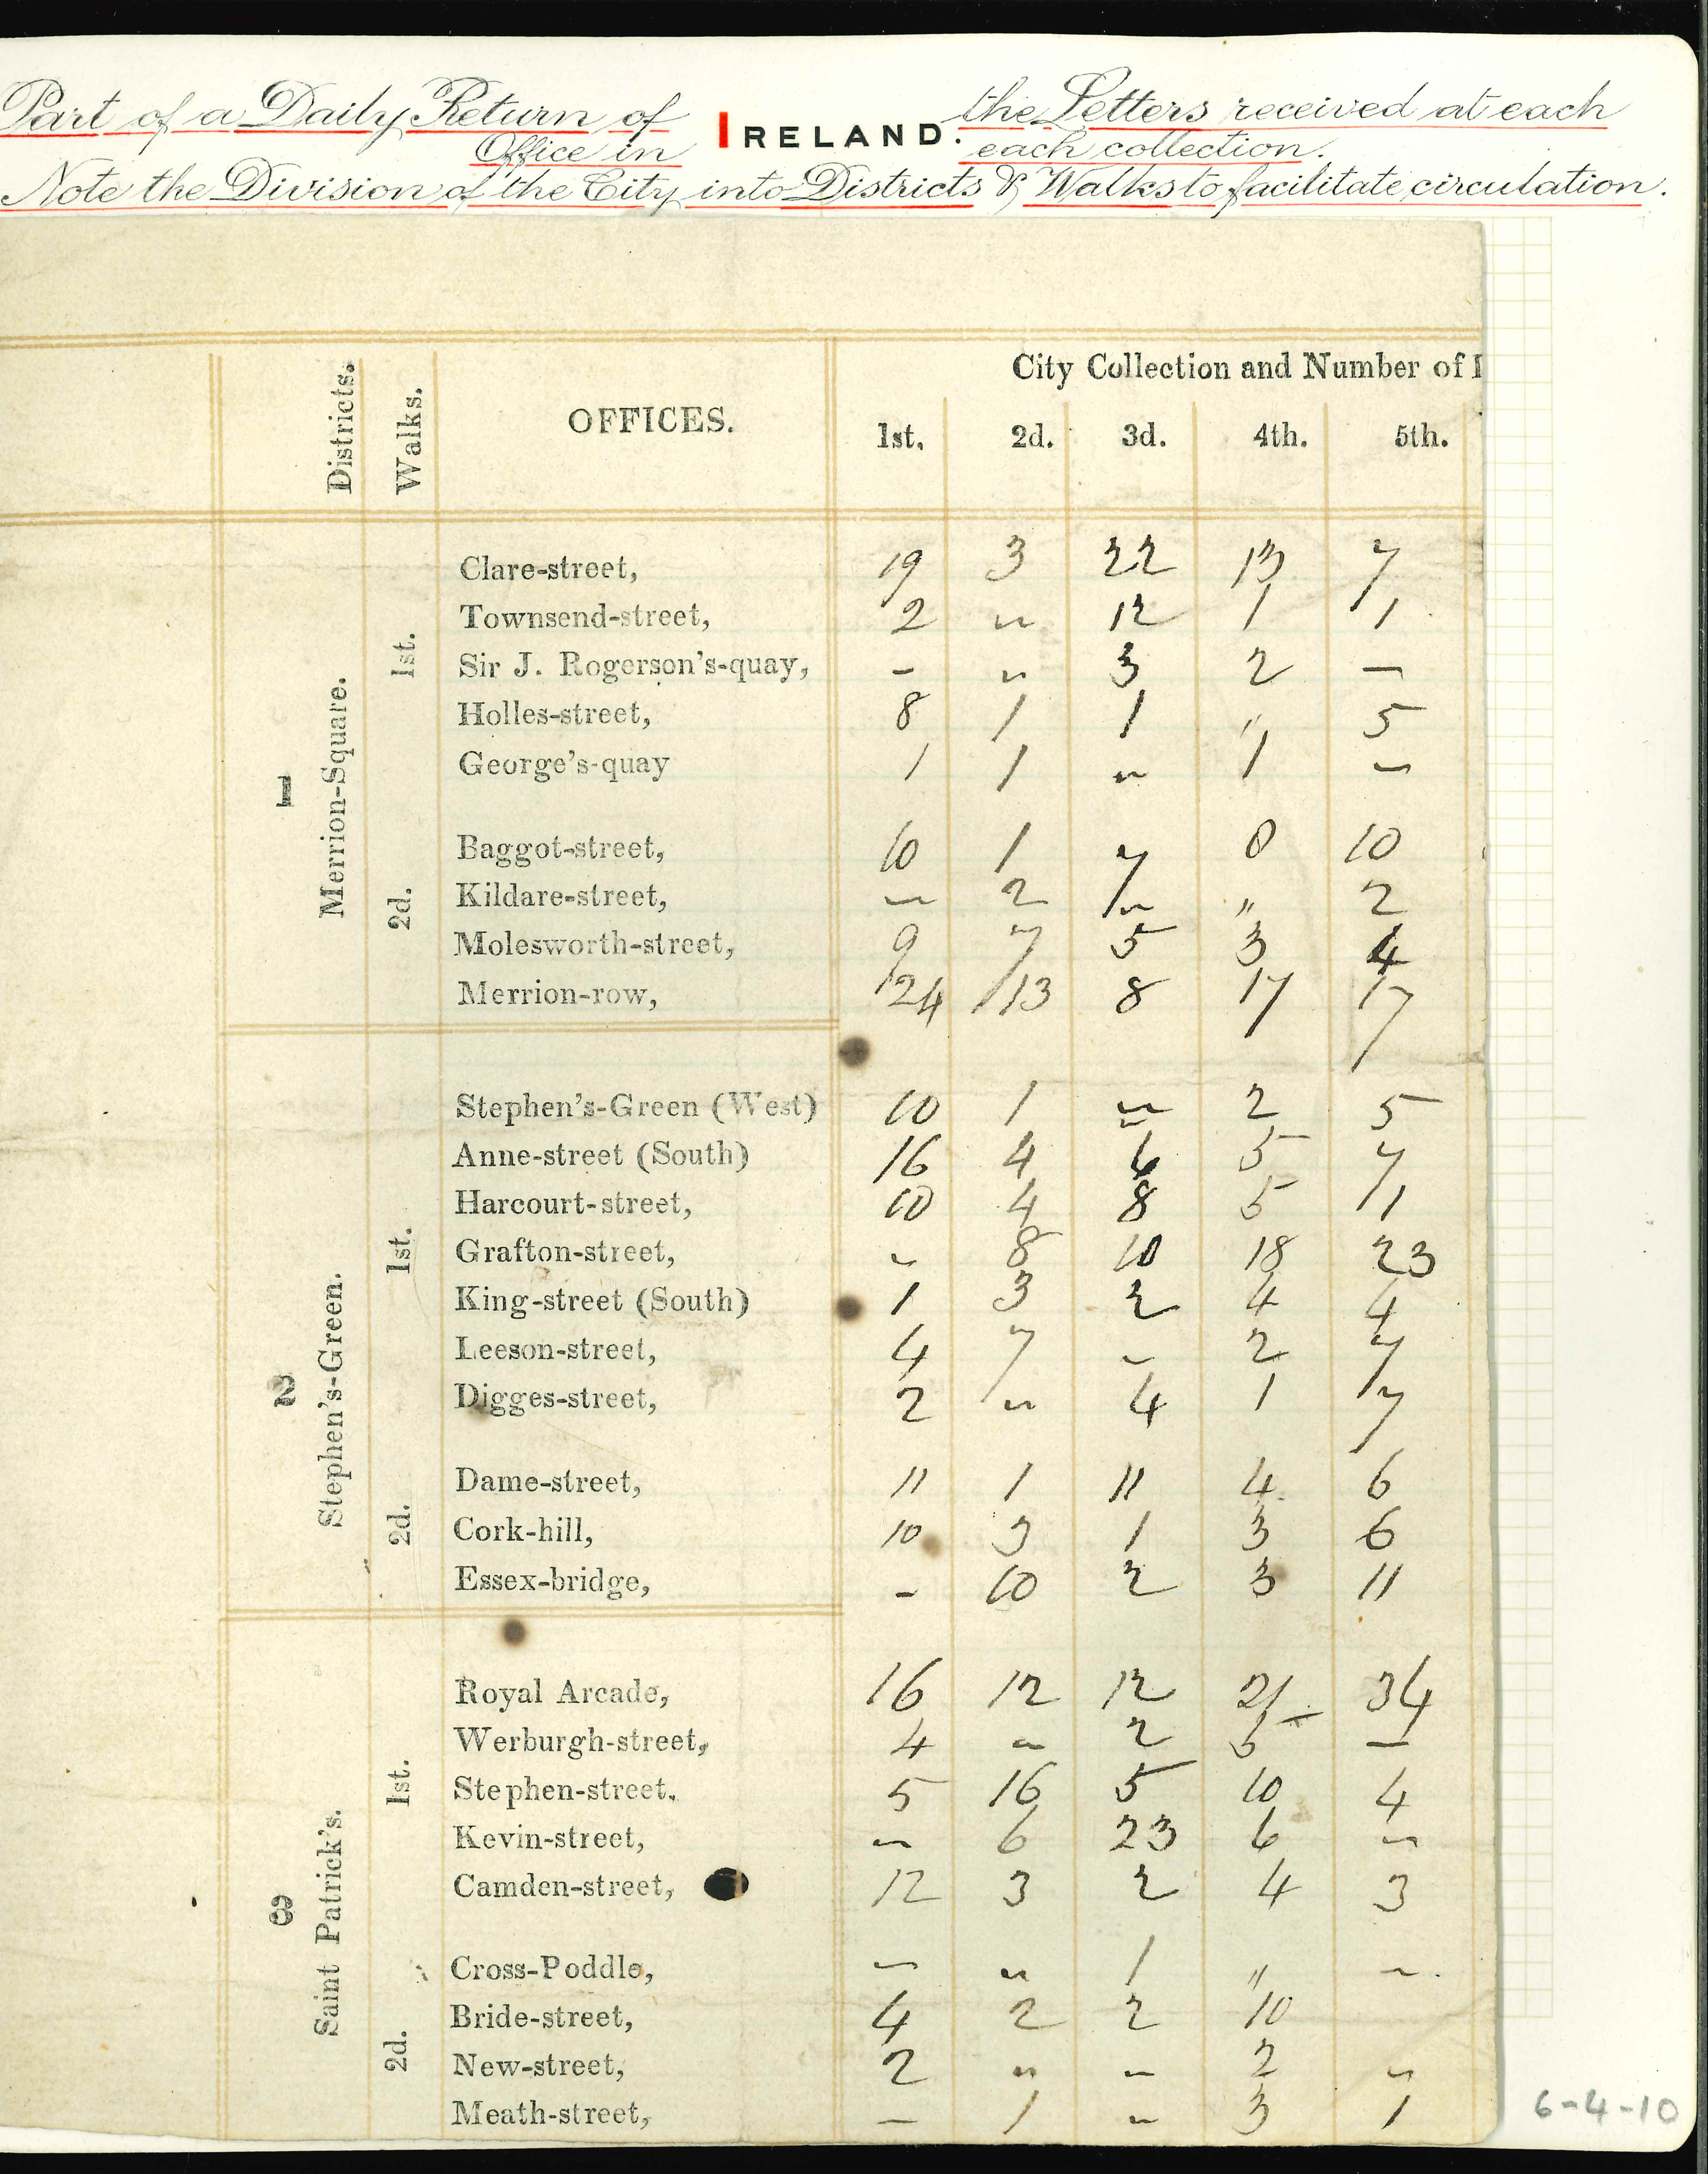 Part of a Daily Return of the Letters received at each
Office in IRELAND. each collection.
Note the Division of the City into Districts & Walks to facilitate circulation.
City Collection and Number of
Districts. Walks. OFFICES. 1st. 2d. 3d. 4th. 5th.
1 Merrion-Square.
1st.
Clare-street, 19 3 22 13 7
Townsend-street, 2 " 12 1 1
Sir J. Rogerson's-quay, - " 3 2 -
Holles-street, 8 1 1 " 5
George's-quay 1 1 " 1 -
2d.
Baggot-street, 10 1 7 0 10
Kildare-street, - 2 " " 2
Molesworth-street, 9 7 5 3 4
Merrion-row, 24 13 8 17 17
2 Stephen's-Green.
1st.
Stephen's-Green (West) 10 1 " 2 5
Anne-street (South) 16 4 6 5 7
Harcourt-street, 10 4 8 5 1
Grafton-street, - 8 10 18 23
King-street (South) 1 3 2 4 4
Leeson-street, 4 7 - 2 7
Digges-street, 2 " 4 1 7
2d.
Dame-street, 11 1 11 4 6
Cork-hill, 10 3 1 3 6
Essex-bridge, - 10 2 3 11
3 Saint Patrick's.
1st.
Royal Arcade, 16 12 12 21 34
Werburgh-street, 4 " 2 5 -
Stephen-street. 5 16 5 10 4
Kevin-street, - 6 23 6 "
Camden-street, 12 3 2 4 3
2d.
Cross-Poddle, - " 1 " -
Bride-street, 4 2 2 10
New-street, 2 " - 2 "
Meath-street, - 1 - 3 1
6-4-10